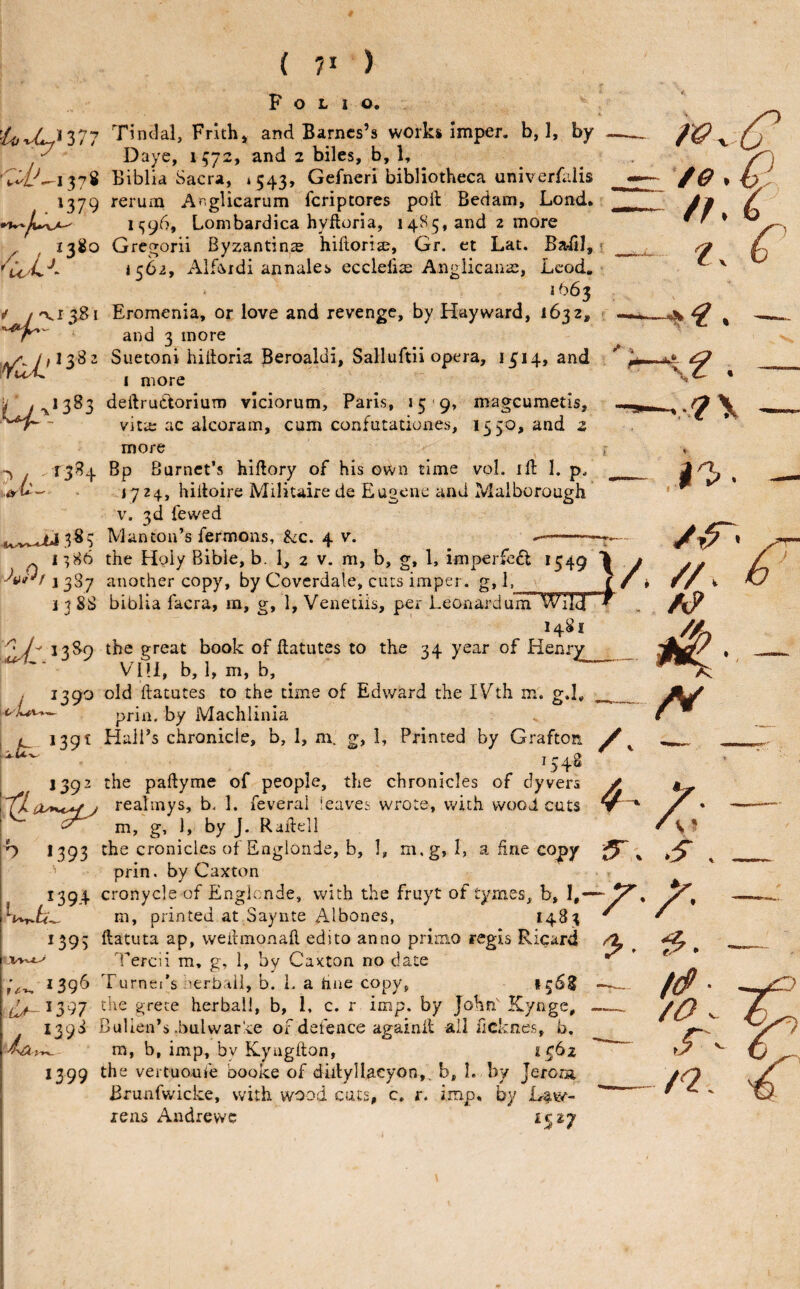 ( 71 )
FOLIO.
1377 Tindal, Frith, and Barnes's works imper. b, l, by
Daye, 1572, and 2 biles, b, l,
10. 6
1378 Biblia Sacra, 1543, Gesneri bibliotheca universalis
10. 6
1379 rerum Anglicarum scriptores post Bedam, Lond.
1596, Lombardica hystoria, 1485, and 2 more
11. 6
1380 Gregorii Byzantinæ historiæ, Gr. et Lat. Basil,
1562, Alfordi annales ecclesiæ Anglicanæ, Leod.
1663
1381 Eromenia, or love and revenge, by Hayward, 1632,
and 3 more
1382 Suetoni historia Beroaldi, Sallustii opera, 1514, and
1 more
1383 destructorium viciorum, Paris, 15 9, magcumetis,
vitæ ac alcoram, cum confutationes, 1550, and 2
more
1384 Bp Burnet's history of his own time vol. 1st l. p.
1724, histoire Militaire de Eugene and Malborough
v. 3d sewed
1385 Manton's sermons, &c. 4 v.
1386 the Holy Bible, b. l, 2 v. m, b, g, l, imperfect 1549
1387 another copy, by Coverdale, cuts imper. g, l,
1388 biblia sacra, m, g, l, Venetiis, per Leonardum Wild
1481
1389 the great book of statutes to the 34 year of Henry
VIII, b, l, m, b,
1390 old statutes to the time of Edward the IVth m. g.l.
prin. by Machlinia
1391 Hall's chronicle, b, l, m. g, l, Printed by Grafton
1548
1392 the pastyme of people, the chronicles of dyvers
realmys, b. l. several leaves wrote, with wood cuts
m, g, l, by J. Rastell
1393 the cronicles of Englonde, b, l, m, g, l, a fine copy
prin. by Caxton
5. 5.
1394 cronycle of Englonde, with the fruyt of tymes, b, l,
m, printed at Saynte Albones, 1483
7. 7.
1395 statuta ap, westmonast edito anno primo regis Ricard
Tercii m, g, l, by Caxton no date
3. 3.
1396 Turner's herball, b. l. a fine copy, 1568
1397 the grete herball, b, l, c. r imp. by John Kynge,
1398 Bulien's bulwarke of defence against all sicknes, b.
m, b, imp, by Kyngston, 1562
1399 the vertuouse booke of distyllacyon, b, l. by Jerom
Brunswicke, with wood cuts, c. r. imp. by Law-
rens Andrewe 1527